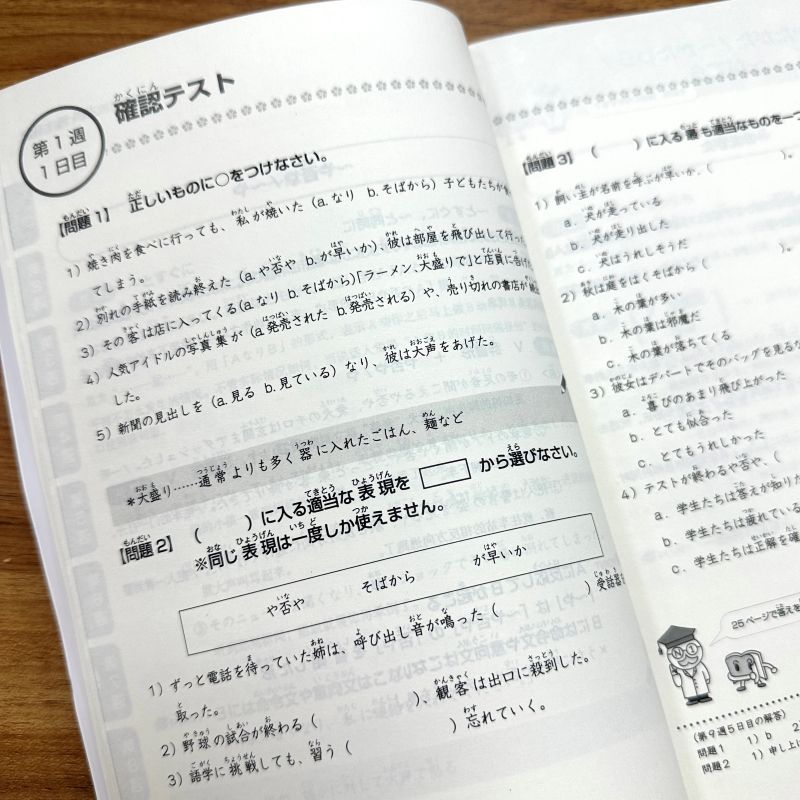 確認テスト
第1週
1日目
【問題1】 正しいものに○をつけなさい。
1) 焼き肉を食べに行っても、私が焼いた（a.なり b.そばから）子どもたちが食べ
てしまう。
2) 別れの手紙を読み終えた（a.や否や b.が早いか）、彼は部屋を飛び出して行った
3) その客は店に入ってくる（a.なり b.そばから）「ラーメン、大盛りで」と店員に告げた
4) 人気アイドルの写真集が（a.発売された b.発売される）や、売り切れの書店が
した。
5) 新聞の見出しを（a.見る b.見ている）なり、彼は大声をあげた。
*大盛り……通常よりも多く器に入れたごはん、麺など
【問題2】 （ ）に入る適当な表現を から選びなさい。
※同じ表現は一度しか使えません。
や否や そばから が早いか
1) ずっと電話を待っていた姉は、呼び出し音が鳴った（ ）受話器
取った。
2) 野球の試合が終わる（ ）、観客は出口に殺到した。
3) 語学に挑戦しても、習う（ ）忘れていく。
【問題3】 （ ）に入る最も適当なものを一つ
1) 飼い主が名前を呼ぶが早いか、（ ）。
a. 犬が走っている
b. 犬が走り出した
c. 犬はうれしそうだ
2) 秋は庭をはくそばから（ ）。
a. 木の葉が多い
b. 木の葉は邪魔だ
c. 木の葉が落ちてくる
3) 彼女はデパートでそのバッグを見るな
a. 喜びのあまり飛び上がった
b. とても似合った
c. とてもうれしかった
4) テストが終わるや否や、（
a. 学生たちは答えが知りた
b. 学生たちは疲れている
c. 学生たちは正解を確
25ページで答えを
（第9週5日目の解答）
問題1 1) b 2)
問題2 1) 申し上げ